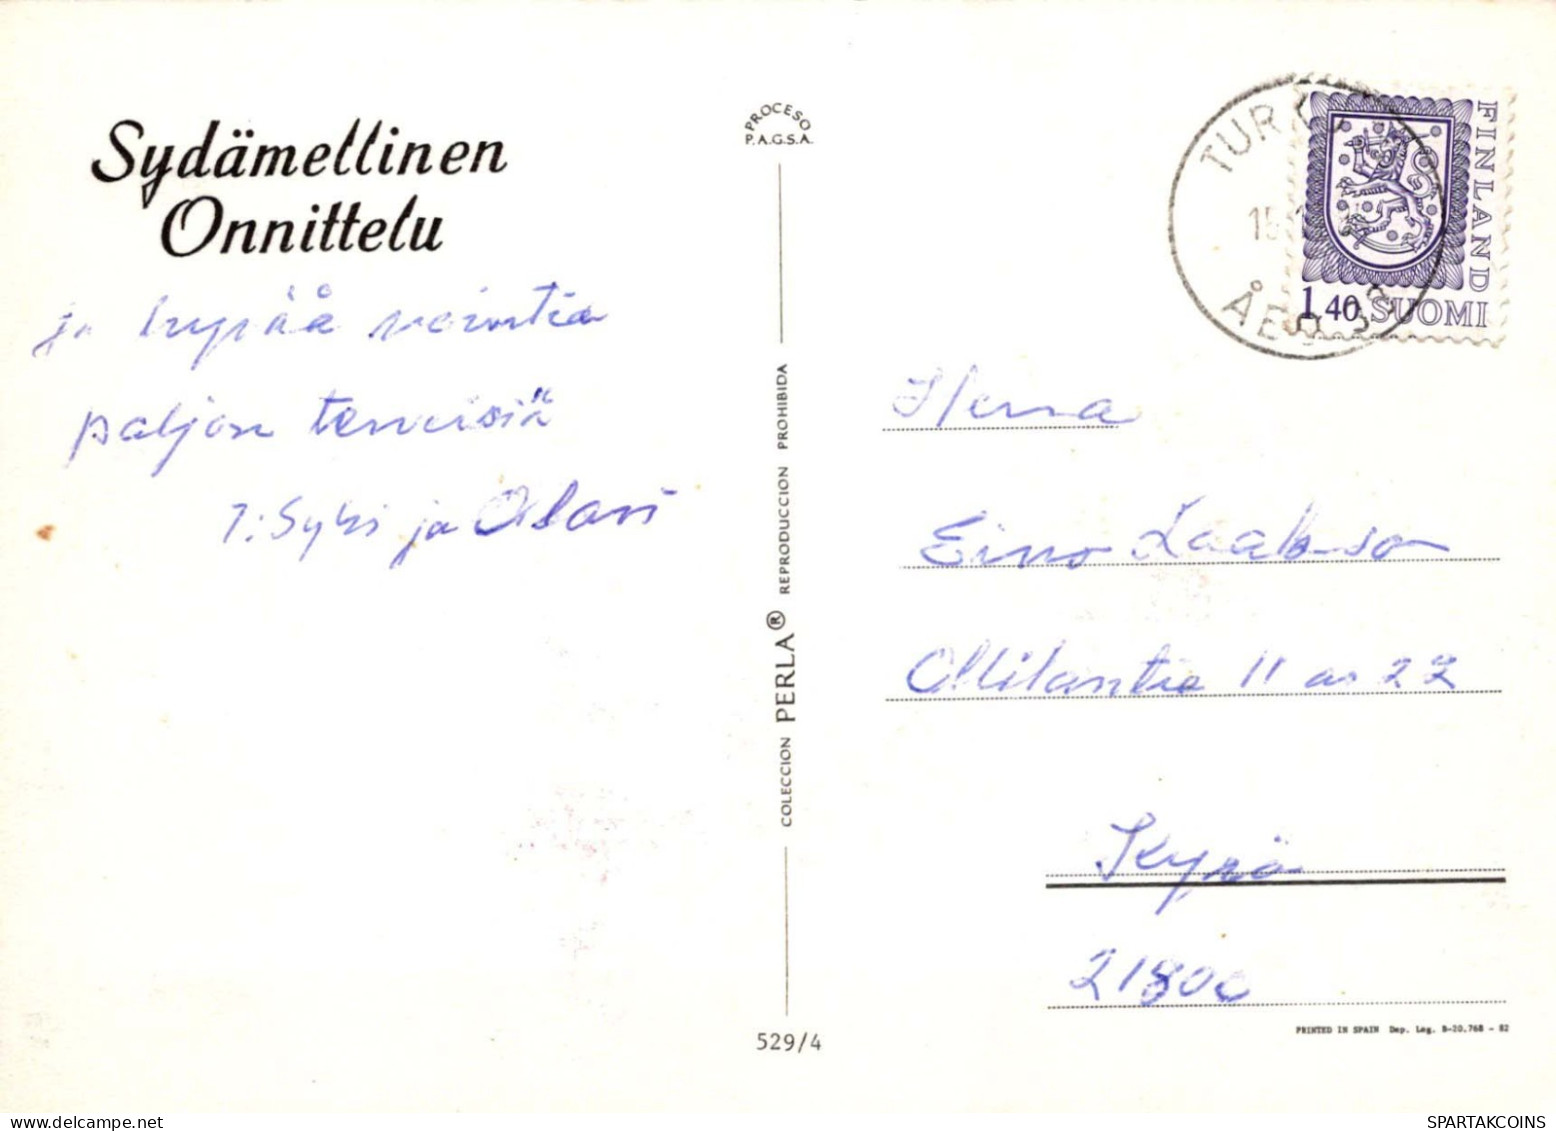 Sydämellinen
Onnittelu
ja hyvää vointia
paljon terveisiä
T: Sylvi ja Olavi
PROCESO
P.A.G.S.A.
COLECCION PERLA® REPRODUCCION PROHIBIDA
529/4
TURKU
15
ÅBO
FINLAND
1,40 SUOMI
Herra
Eino Laakso
Ollilantie 11 as 22
Kyrö
21800
PRINTED IN SPAIN Dep. Leg. B-20.768 - 82
SPARTAKCOINS